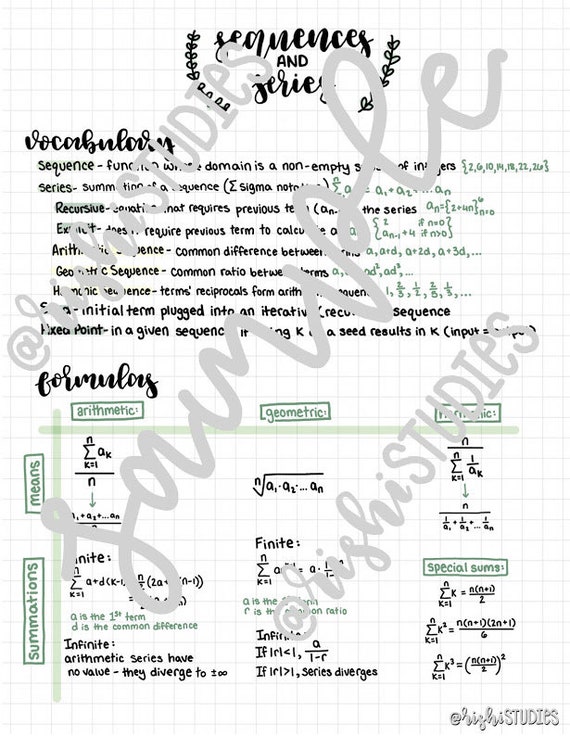 sequences
AND
series
vocabulary
sequence - function whose domain is a non-empty of integers {2,6,10,14,18,22,26}
series - summation of a sequence (Σ sigma notation) a₁+a₂+...aₙ
Recursive - equation that requires previous term (aₙ₋ the series aₙ={2+4n}⁶ₙ₌₀
Explicit - does require previous term to calculate {2 if n=0
aₙ₋₁+4 if n>0
Arithmetic Sequence - common difference between terms a, a+d, a+2d, a+3d,...
Geometric Sequence - common ratio between terms a, ad², ad³,...
Harmonic Sequence - terms' reciprocals form arithmetic sequence 1, 2/3, 1/2, 2/5, 1/3,...
Seed - initial term plugged into an iterative (recursive) sequence
Fixed Point - in a given sequence, if using K as a seed results in K (input = output)
formulas
arithmetic:
geometric:
harmonic:
means
n
Σ aₖ
K=1
n
↓
a₁+a₂+...aₙ
ⁿ√a₁·a₂·...aₙ
n
n
Σ 1/aₖ
K=1
↓
n
1/a₁+1/a₂+...1/aₙ
summations
Finite:
n
Σ a+d(K-1) n/2(2a+ (n-1))
K=1
a is the 1st term
d is the common difference
Infinite:
arithmetic series have
no value - they diverge to ±∞
Finite:
n
Σ = a·
K=1
a is the term
r is the common ratio
Infinite:
If |r|<1, a/1-r
If |r|>1, series diverges
special sums:
n
Σ K = n(n+1)/2
K=1
n
Σ K² = n(n+1)(2n+1)/6
K=1
n
Σ K³ = (n(n+1)/2)²
K=1
sample
@rishiSTUDIES
@rishiSTUDIES
@rishiSTUDIES